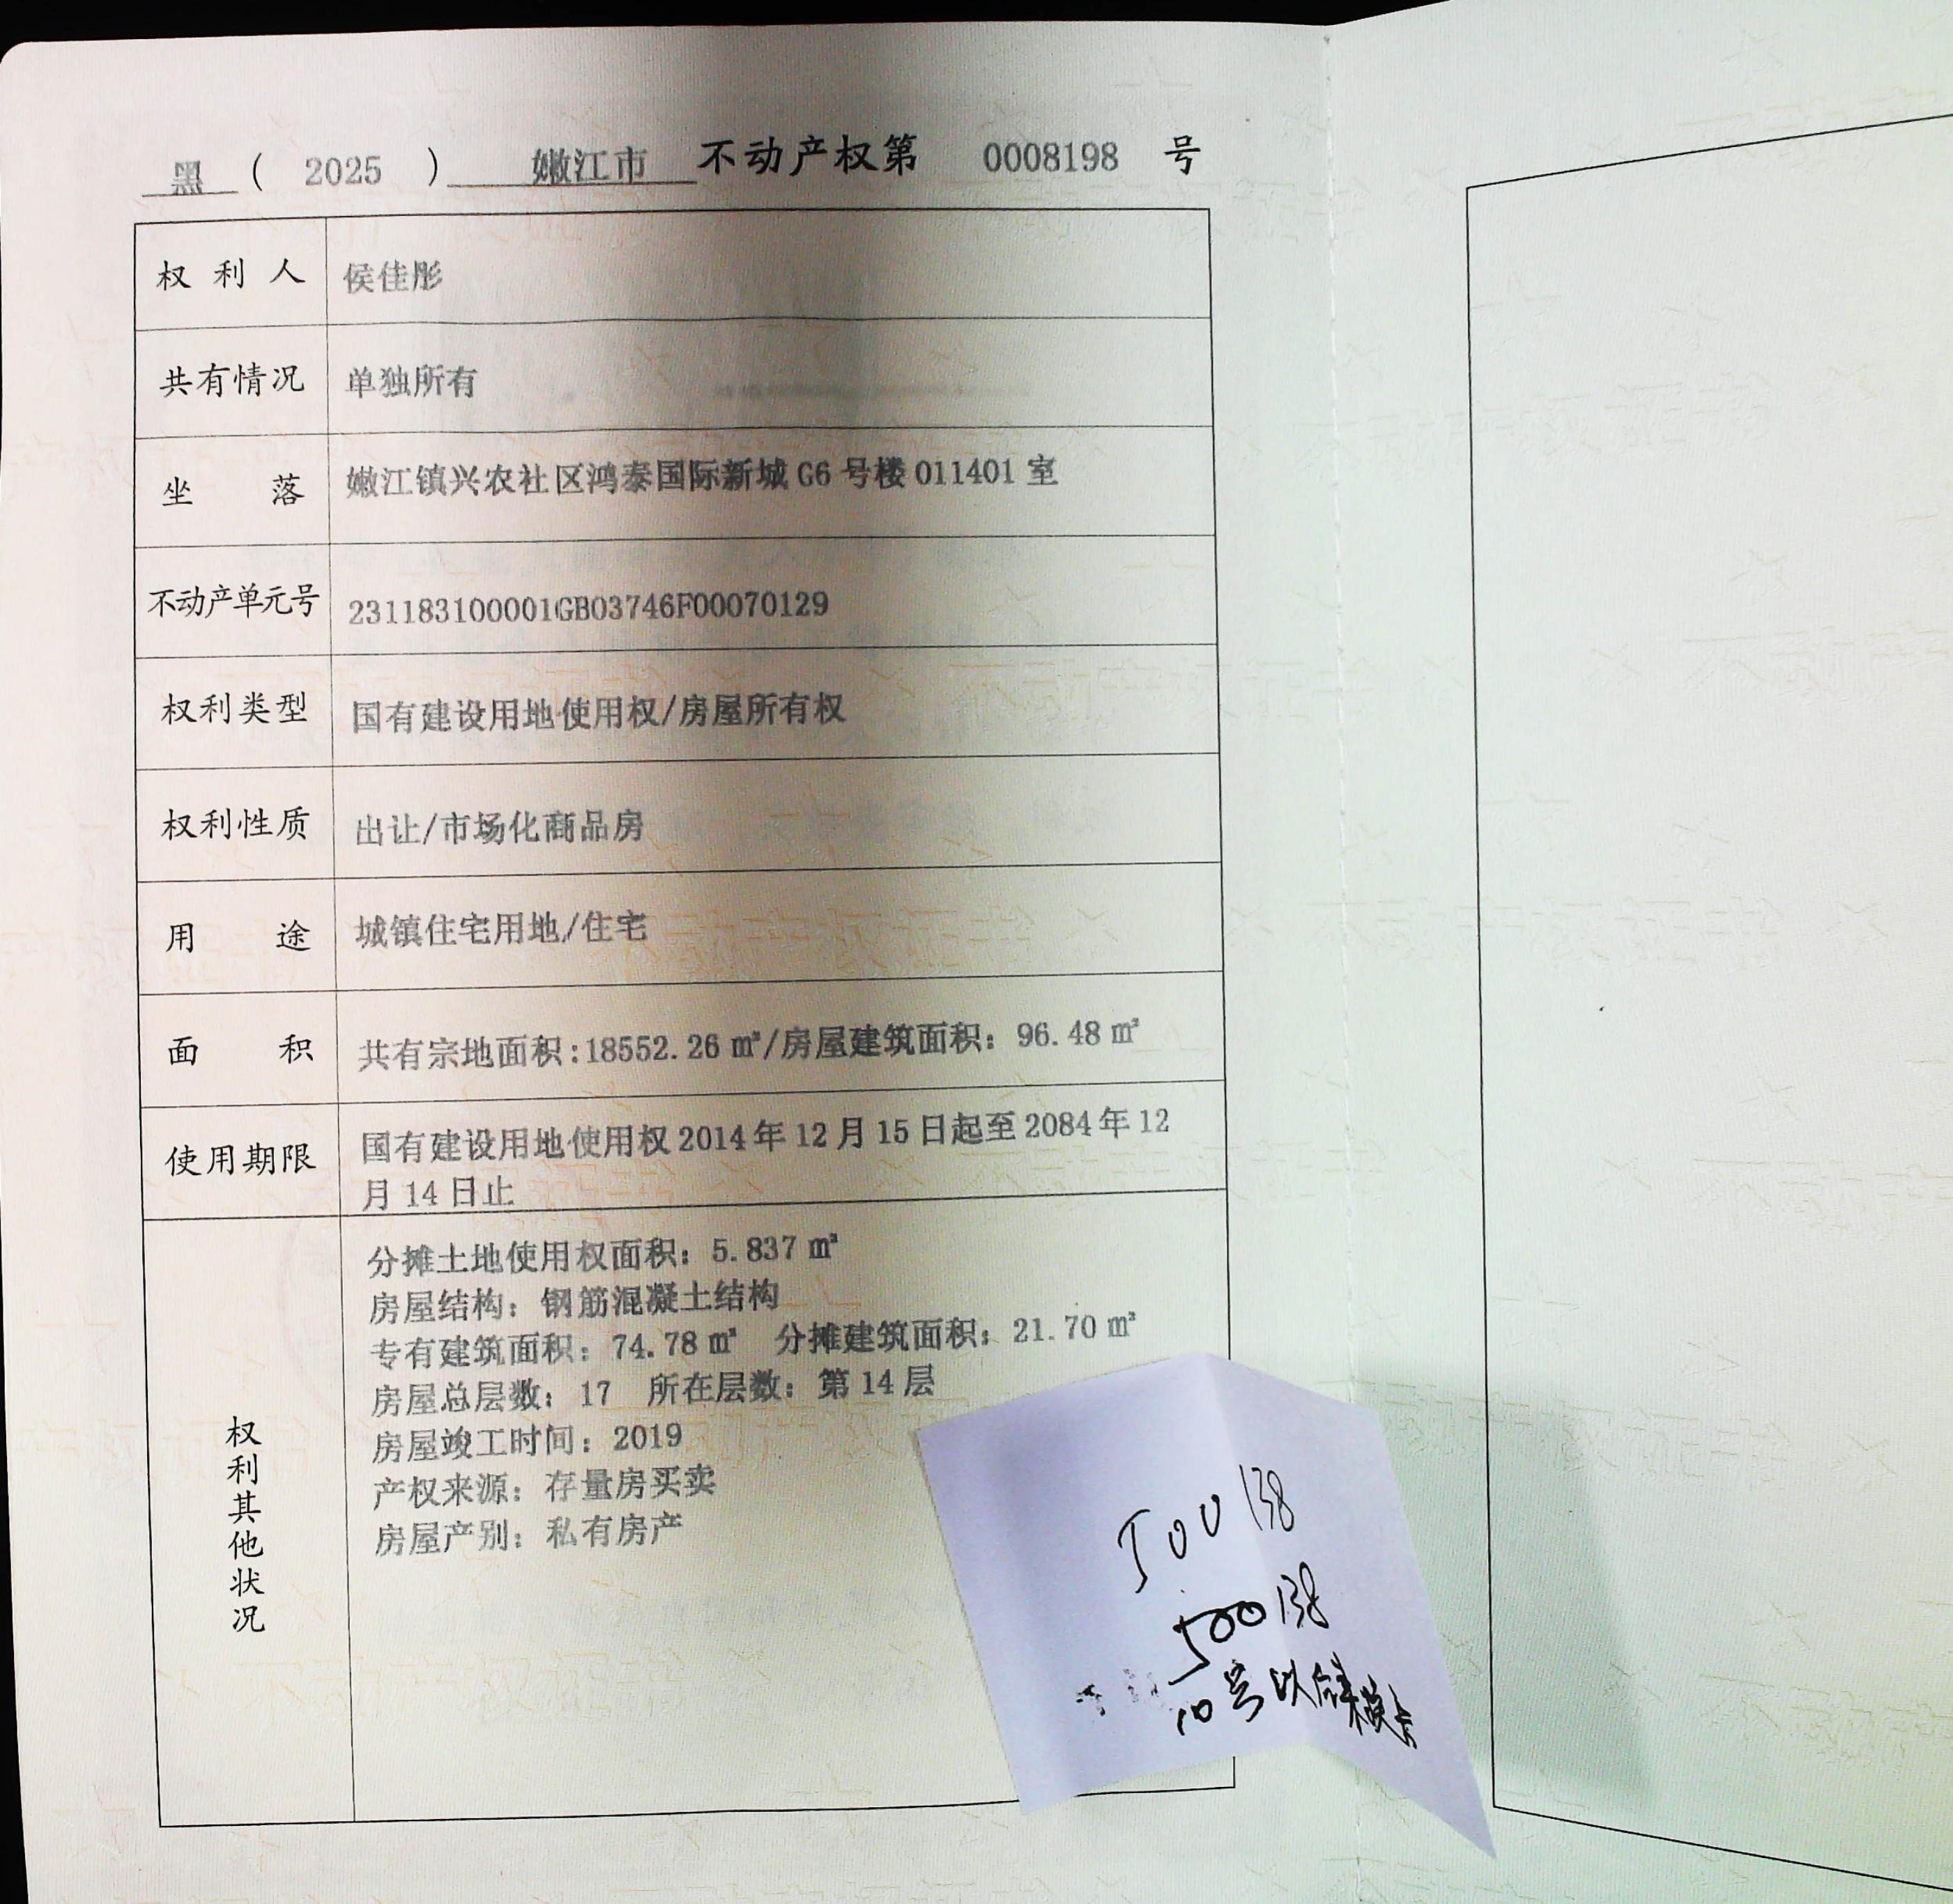 黑 ( 2025 ) 嫩江市 不动产权第 0008198 号
权利人 侯佳彤
共有情况 单独所有
坐落 嫩江镇兴农社区鸿泰国际新城 G6 号楼 011401 室
不动产单元号 231183100001GB03746F00070129
权利类型 国有建设用地使用权/房屋所有权
权利性质 出让/市场化商品房
用途 城镇住宅用地/住宅
面积 共有宗地面积:18552.26 ㎡/房屋建筑面积: 96.48 ㎡
使用期限 国有建设用地使用权 2014 年 12 月 15 日起至 2084 年 12
月 14 日止
权利其他状况
分摊土地使用权面积: 5.837 ㎡
房屋结构: 钢筋混凝土结构
专有建筑面积: 74.78 ㎡ 分摊建筑面积: 21.70 ㎡
房屋总层数: 17 所在层数: 第 14 层
房屋竣工时间: 2019
产权来源: 存量房买卖
房屋产别: 私有房产
500 138
500 138
10号以后来换卡